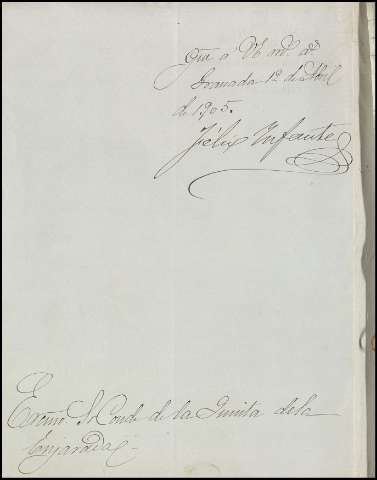 Gde a V. E. m.s a.s
Granada 1º de Abril
de 1905.
Félix Infante
Excmo Sr Conde de la Quinta de la
Enjarada.